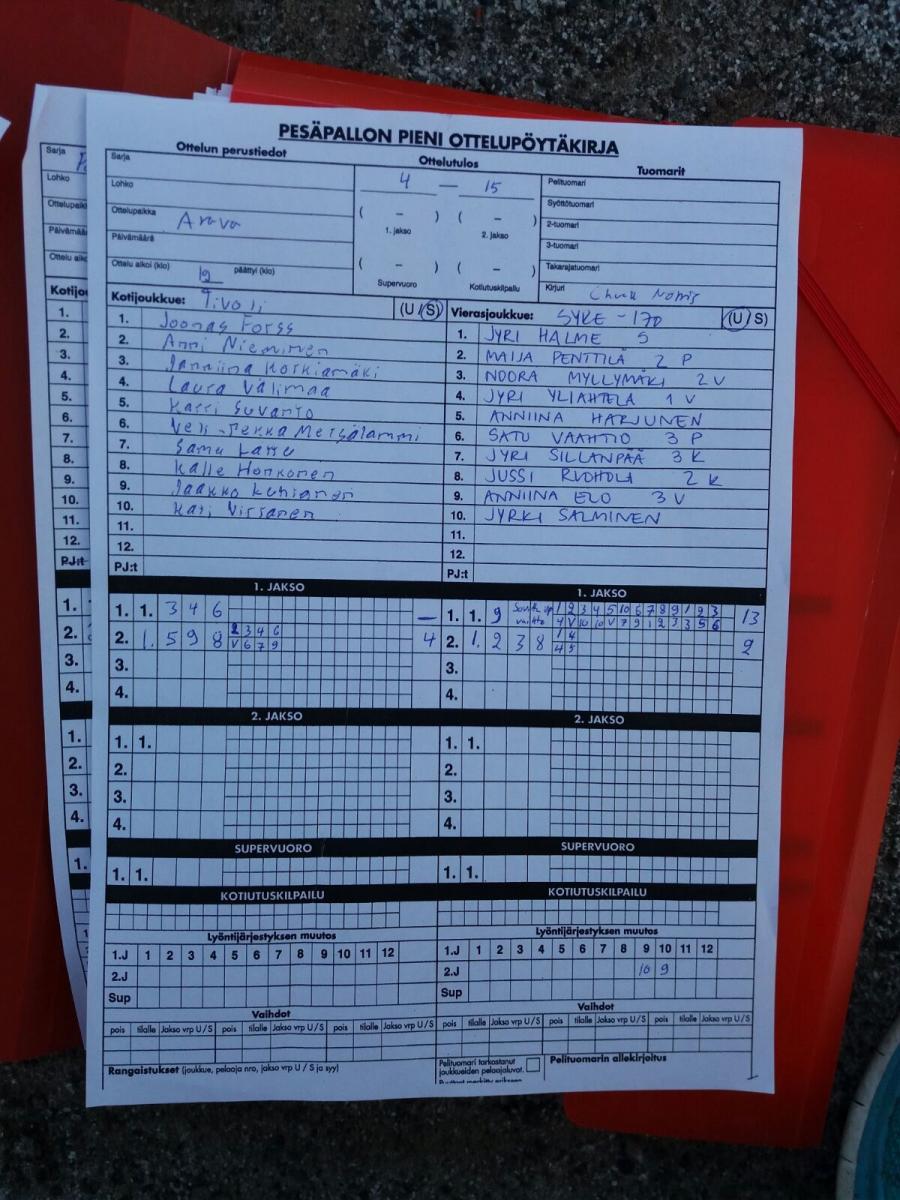 PESÄPALLON PIENI OTTELUPÖYTÄKIRJA
Ottelun perustiedot
Ottelutulos
Tuomarit
Sarja
Lohko
Ottelupaikka Arava
Päivämäärä
Ottelu alkoi (klo) 19 päättyi (klo)
4 — 15
( – ) ( – )
1. jakso 2. jakso
( – ) ( – )
Supervuoro Kotiutuskilpailu
Pelituomari
Syöttötuomari
2-tuomari
3-tuomari
Takarajatuomari
Kirjuri Chuck Norris
Kotijoukkue: Tivoli (U / S)
1. Joonas Forss
2. Anni Nieminen
3. Janniina Korkiamäki
4. Laura Välimaa
5. Harri Suvanto
6. Veli-Pekka
7. Samu
8. Kalle Honkonen
9. Jaakko
10. Kati Virtanen
11.
12.
PJ:t
Vierasjoukkue: SYKE-170 (U / S)
1. JYRI HALME 5
2. MAIJA PENTTILÄ 2 P
3. NOORA MYLLYMÄKI 2 V
4. JYRI YLIAHTELA 1 V
5. ANNIINA HARJUNEN
6. SATU VAAHTIO 3 P
7. JYRI SILLANPÄÄ 3 K
8. JUSSI RUOHOLA 2 K
9. ANNIINA ELO 3 V
10. JYRKI SALMINEN
11.
12.
PJ:t
1. JAKSO
1. 1. 3 4 6 —
2. 1. 5 9 8 2 3 4 6 4
V 6 7 9
3.
4.
1. JAKSO
1. 1. 9 1 2 3 4 5 10 6 7 8 9 1 2 3 13
4 V 10 10 V 7 9 1 2 3 3 5 6
2. 1. 2 3 8 1 4 2
4 5
3.
4.
2. JAKSO
1. 1.
2.
3.
4.
2. JAKSO
1. 1.
2.
3.
4.
SUPERVUORO
1. 1.
SUPERVUORO
1. 1.
KOTIUTUSKILPAILU
KOTIUTUSKILPAILU
Lyöntijärjestyksen muutos
1.J 1 2 3 4 5 6 7 8 9 10 11 12
2.J
Sup
Lyöntijärjestyksen muutos
1.J 1 2 3 4 5 6 7 8 9 10 11 12
2.J 10 9
Sup
Vaihdot
pois tilalle Jakso vrp U / S pois tilalle Jakso vrp U / S pois tilalle Jakso vrp U / S
Vaihdot
pois tilalle Jakso vrp U / S pois tilalle Jakso vrp U / S pois tilalle Jakso vrp U / S
Rangaistukset (joukkue, pelaaja nro, jakso vrp U / S ja syy)
Pelituomari tarkastanut
joukkueiden pelaajaluvat.
Pelituomarin allekirjoitus